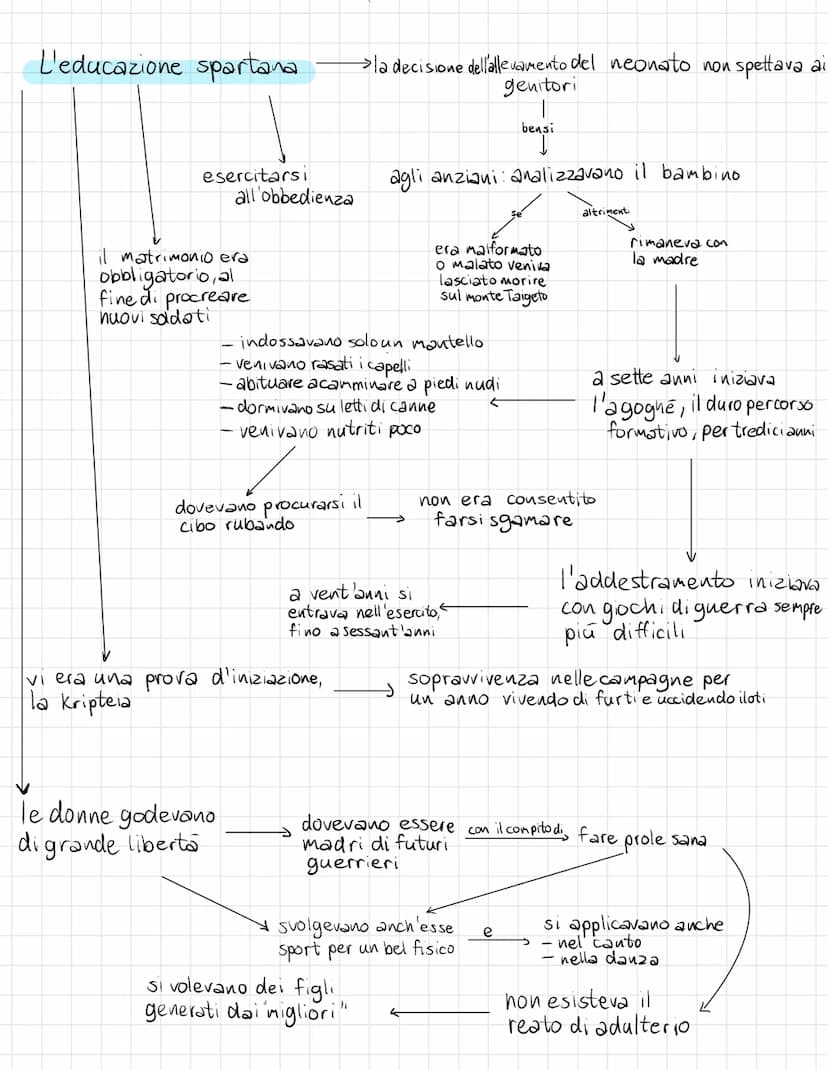 L'educazione spartana
la decisione dell'allevamento del neonato non spettava ai
genitori
bensì
agli anziani: analizzavano il bambino
esercitarsi
all'obbedienza
se
altrimenti
era malformato
o malato veniva
lasciato morire
sul monte Taigeto
rimaneva con
la madre
il matrimonio era
obbligatorio, al
fine di procreare
nuovi soldati
- indossavano solo un mantello
- venivano rasati i capelli
- abituare a camminare a piedi nudi
- dormivano su letti di canne
- venivano nutriti poco
a sette anni iniziava
l'agoghé, il duro percorso
formativo, per tredici anni
dovevano procurarsi il
cibo rubando
non era consentito
farsi sgamare
l'addestramento iniziava
con giochi di guerra sempre
piú difficili
a vent'anni si
entrava nell'esercito,
fino a sessant'anni
vi era una prova d'iniziazione,
la Kripteia
sopravvivenza nelle campagne per
un anno vivendo di furti e uccidendo iloti
le donne godevano
di grande libertà
dovevano essere
madri di futuri
guerrieri
con il compito di
fare prole sana
svolgevano anch'esse
sport per un bel fisico
e
si applicavano anche
- nel canto
- nella danza
si volevano dei figli
generati dai "migliori"
non esisteva il
reato di adulterio